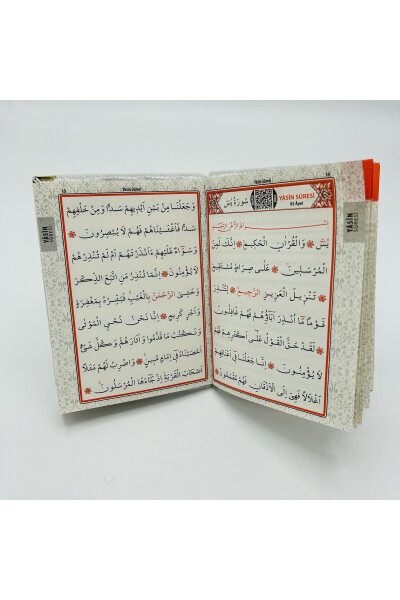 Yâsin Sûresi
14
YÂSİN SÛRESİ
83 Âyet
سُورَةُ يٰسٓ
يٰسٓ ۞ وَالْقُرْاٰنِ الْحَك۪يمِ ۞ اِنَّكَ لَمِنَ
الْمُرْسَل۪ينَ ۞ عَلٰى صِرَاطٍ مُسْتَق۪يمٍ
۞ تَنْز۪يلَ الْعَز۪يزِ الرَّح۪يمِ ۞ لِتُنْذِرَ
قَوْمًا مَٓا اُنْذِرَ اٰبَٓاؤُ۬هُمْ فَهُمْ غَافِلُونَ
۞ لَقَدْ حَقَّ الْقَوْلُ عَلٰٓى اَكْثَرِهِمْ فَهُمْ
لَا يُؤْمِنُونَ ۞ اِنَّا جَعَلْنَا ف۪ٓي اَعْنَاقِهِمْ
اَغْلَالًا فَهِيَ اِلَى الْاَذْقَانِ فَهُمْ مُقْمَحُونَ ۞
YÂSİN
SÛRESİ
Yâsin Sûresi
وَجَعَلْنَا مِنْ بَيْنِ اَيْد۪يهِمْ سَدًّا وَمِنْ خَلْفِهِمْ
سَدًّا فَاَغْشَيْنَاهُمْ فَهُمْ لَا يُبْصِرُونَ ۞
وَسَوَٓاءٌ عَلَيْهِمْ ءَاَنْذَرْتَهُمْ اَمْ لَمْ تُنْذِرْهُمْ
لَا يُؤْمِنُونَ ۞ اِنَّمَا تُنْذِرُ مَنِ اتَّبَعَ الذِّكْرَ
وَخَشِيَ الرَّحْمٰنَ بِالْغَيْبِ فَبَشِّرْهُ بِمَغْفِرَةٍ
وَاَجْرٍ كَر۪يمٍ ۞ اِنَّا نَحْنُ نُحْيِ الْمَوْتٰى
وَنَكْتُبُ مَا قَدَّمُوا وَاٰثَارَهُمْ وَكُلَّ شَيْءٍ
اَحْصَيْنَاهُ ف۪ٓي اِمَامٍ مُب۪ينٍ ۞ وَاضْرِبْ لَهُمْ مَثَلًا
اَصْحَابَ الْقَرْيَةِ اِذْ جَٓاءَهَا الْمُرْسَلُونَ ۞